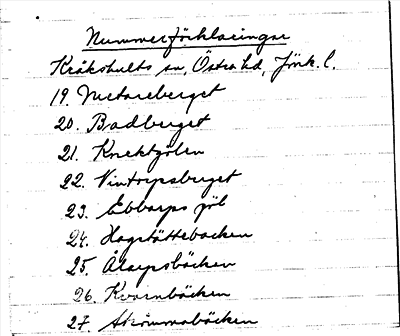 Nummerförklaringar
Kråkshults sn, Östra hd, Jönk. l.
19. Metareberget
20. Badberget
21. Knektgölen
22. Vintorpsberget
23. Ebbarps göl
24. Hagstättebacken
25. Ålarpsbäcken
26. Kvarnbäcken
27. Strömmabäcken